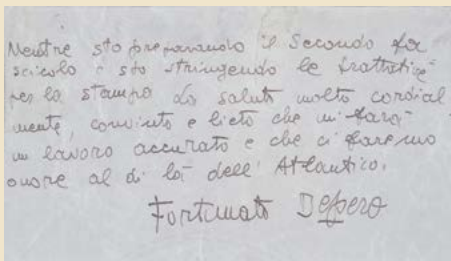 Mentre sto preparando il secondo fa
scicolo e sto stringendo le trattative
per la stampa La saluto molto cordial
mente, convinto e lieto che mi farà
un lavoro accurato e che ci faremo
onore al di là dell'Atlantico.
Fortunato Depero